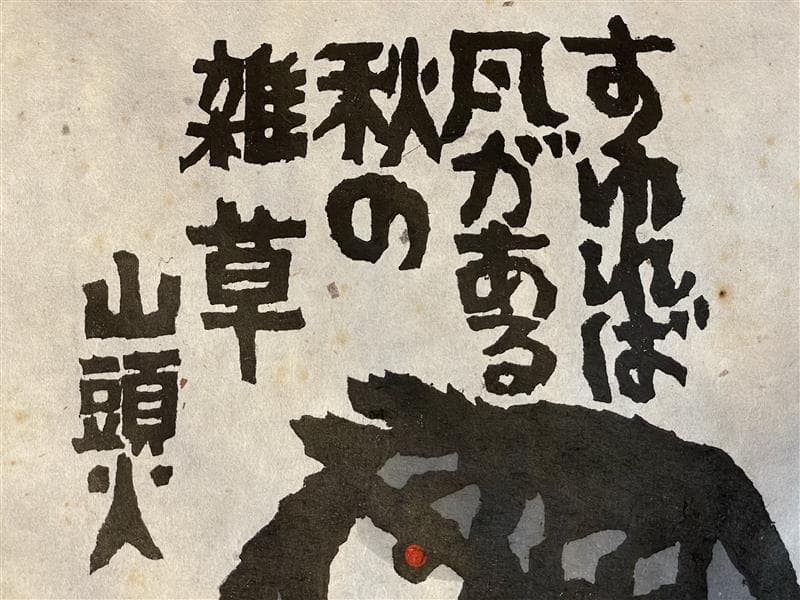 すわれば
風がある
秋の
雑草
山頭火